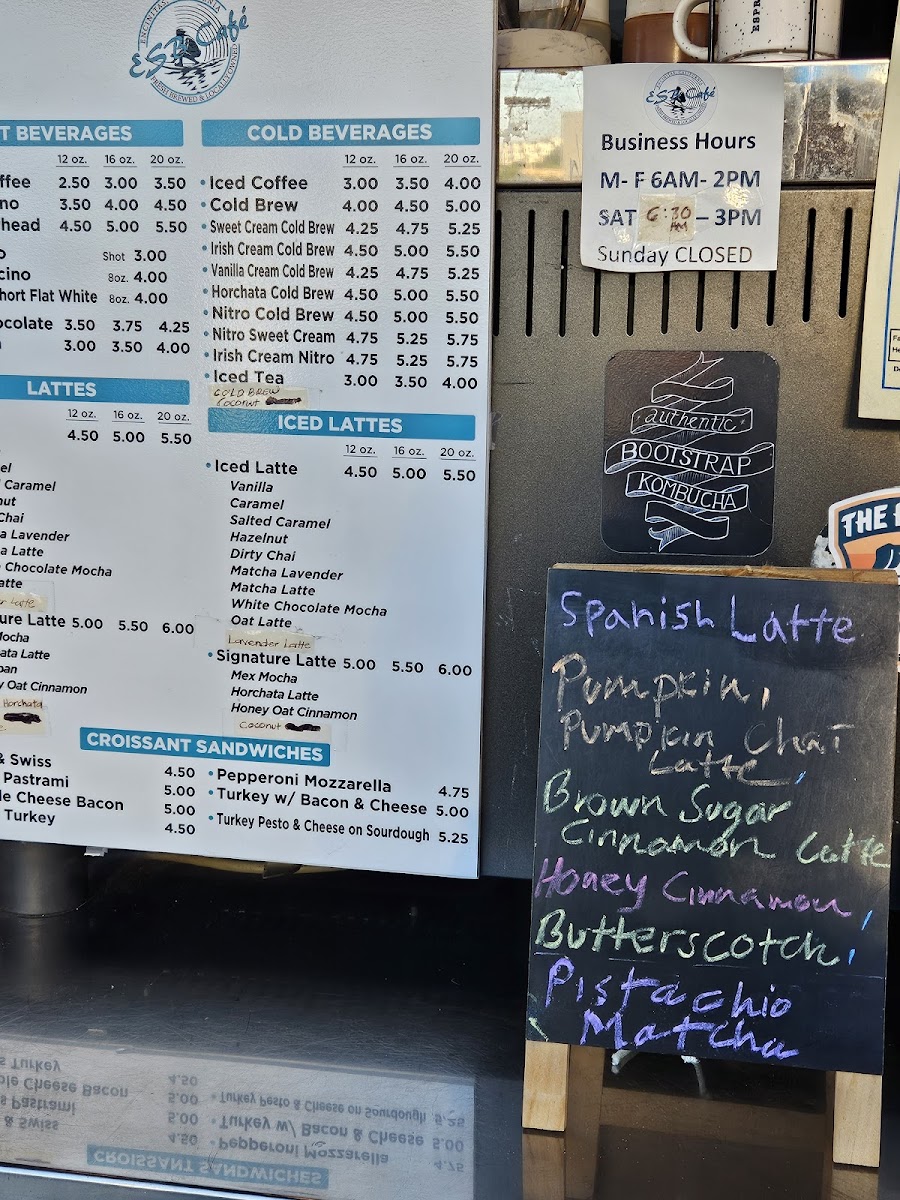 ENCINITAS, CALIFORNIA
ESP Café
FRESH BREWED & LOCALLY OWNED
T BEVERAGES
12 oz. 16 oz. 20 oz.
ffee 2.50 3.00 3.50
no 3.50 4.00 4.50
head 4.50 5.00 5.50
o Shot 3.00
cino 8oz. 4.00
hort Flat White 8oz. 4.00
ocolate 3.50 3.75 4.25
3.00 3.50 4.00
LATTES
12 oz. 16 oz. 20 oz.
4.50 5.00 5.50
el
Caramel
nut
Chai
a Lavender
a Latte
Chocolate Mocha
atte
r Latte
ure Latte 5.00 5.50 6.00
Mocha
ata Latte
pan
y Oat Cinnamon
Horchata
COLD BEVERAGES
12 oz. 16 oz. 20 oz.
• Iced Coffee 3.00 3.50 4.00
• Cold Brew 4.00 4.50 5.00
• Sweet Cream Cold Brew 4.25 4.75 5.25
• Irish Cream Cold Brew 4.50 5.00 5.50
• Vanilla Cream Cold Brew 4.25 4.75 5.25
• Horchata Cold Brew 4.50 5.00 5.50
• Nitro Cold Brew 4.50 5.00 5.50
• Nitro Sweet Cream 4.75 5.25 5.75
• Irish Cream Nitro 4.75 5.25 5.75
• Iced Tea 3.00 3.50 4.00
COLD BREW
Coconut
ICED LATTES
12 oz. 16 oz. 20 oz.
• Iced Latte 4.50 5.00 5.50
Vanilla
Caramel
Salted Caramel
Hazelnut
Dirty Chai
Matcha Lavender
Matcha Latte
White Chocolate Mocha
Oat Latte
Lavender Latte
• Signature Latte 5.00 5.50 6.00
Mex Mocha
Horchata Latte
Honey Oat Cinnamon
Coconut
CROISSANT SANDWICHES
& Swiss 4.50
Pastrami 5.00
le Cheese Bacon 5.00
Turkey 4.50
• Pepperoni Mozzarella 4.75
• Turkey w/ Bacon & Cheese 5.00
• Turkey Pesto & Cheese on Sourdough 5.25
ESPR
ESP Café
Business Hours
M- F 6AM- 2PM
SAT 6:30 AM – 3PM
Sunday CLOSED
authentic
BOOTSTRAP
KOMBUCHA
THE
Spanish Latte
Pumpkin,
Pumpkin Chai
Latte,
Brown Sugar
Cinnamon Latte
Honey Cinnamon,
Butterscotch,
Pistachio
Matcha